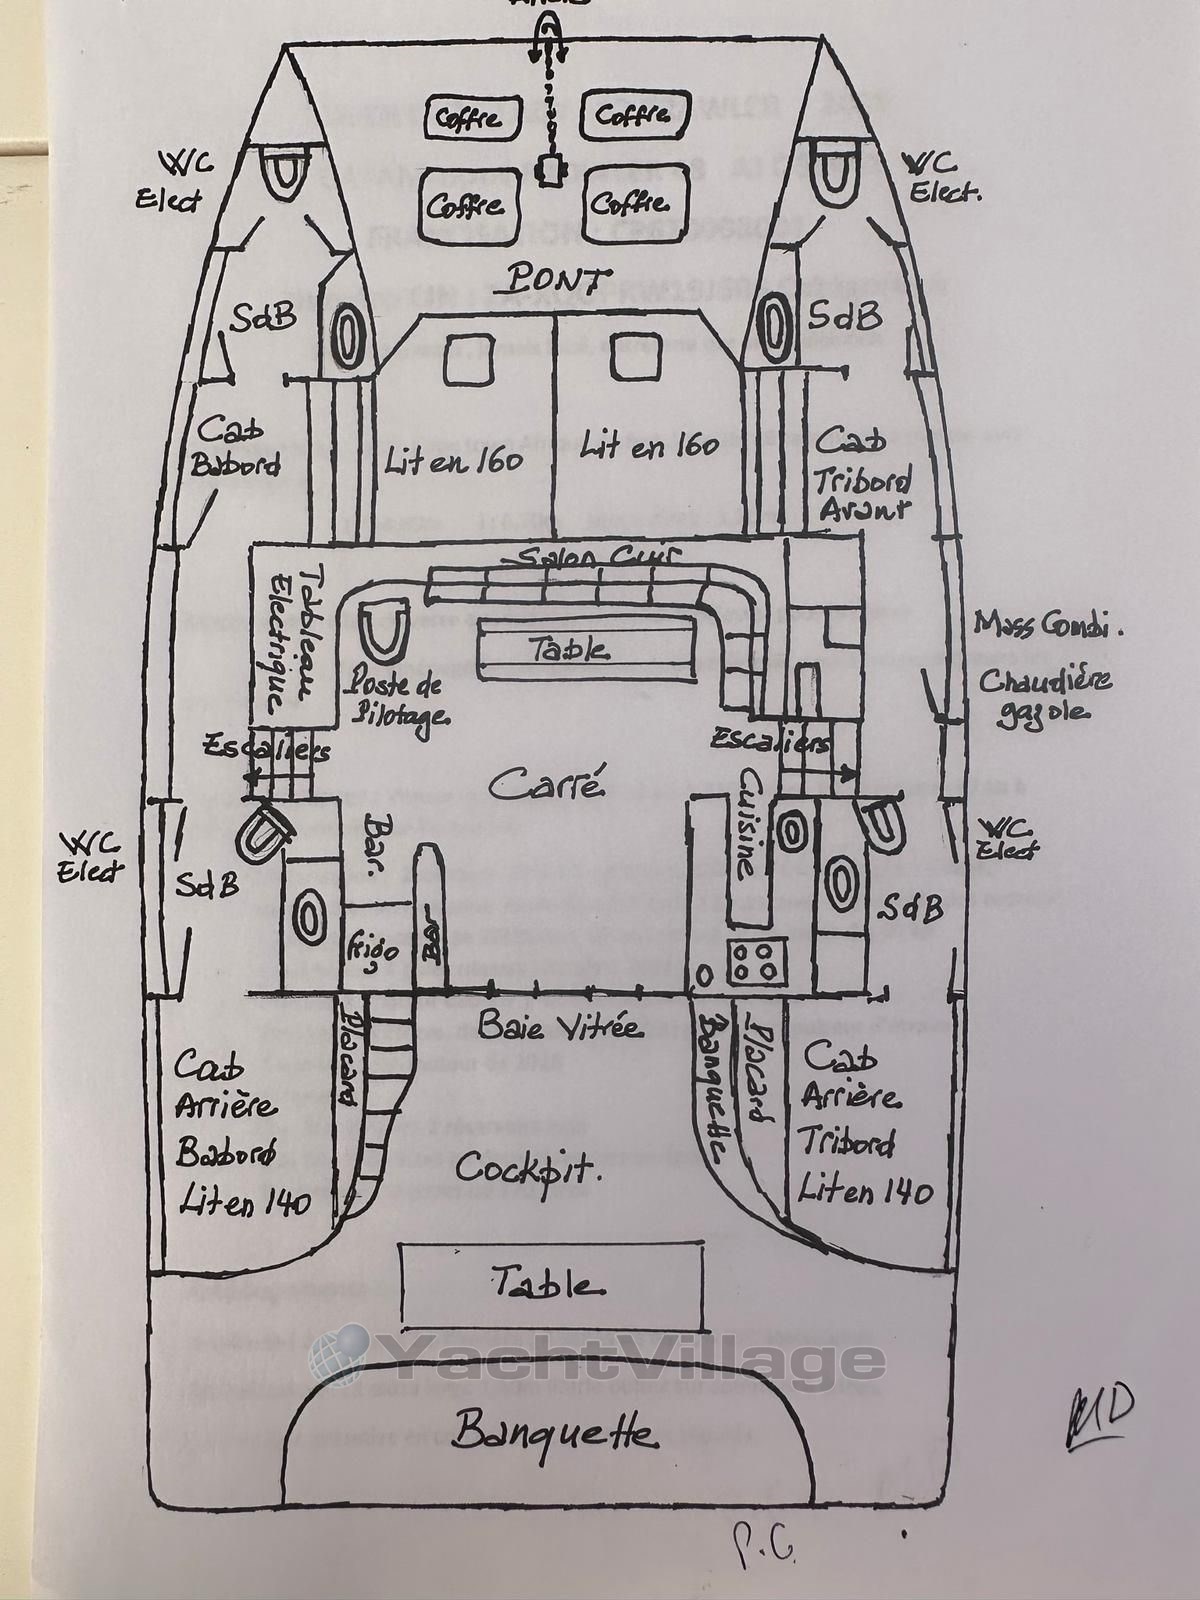 Coffre
Coffre
WC
Elect
WC
Elect.
Coffre
Coffre
PONT
SdB
SdB
Cab
Babord
Lit en 160
Lit en 160
Cab
Tribord
Avant
Salon Cuir
Tableau
Electrique
Table
Mass Combi.
Chaudière
gazole
Poste de
Pilotage.
Escaliers
Escaliers
Carré
Cuisine
Bar.
WC
Elect
WC
Elect
SdB
SdB
frigo
Bar
Placard
Baie Vitrée
Banquette
Placard
Cab
Arrière
Babord
Lit en 140
Cab
Arrière
Tribord
Lit en 140
Cockpit.
Table
YachtVillage
Banquette
MD
P.G.